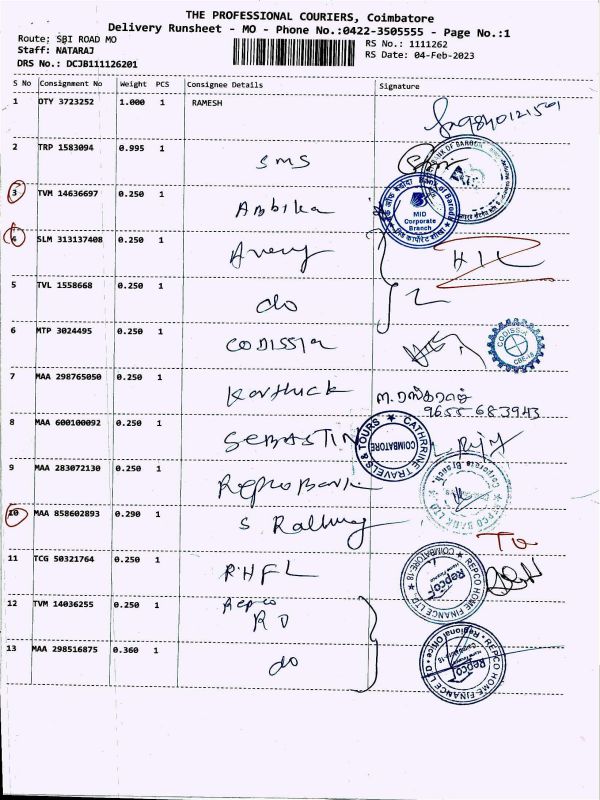 THE PROFESSIONAL COURIERS, Coimbatore
Delivery Runsheet - MO - Phone No.:0422-3505555 - Page No.:1
Route: SBI ROAD MO
RS No.: 1111262
Staff: NATARAJ
RS Date: 04-Feb-2023
DRS No.: DCJB111126201
S No Consignment No Weight PCS Consignee Details Signature
1 OTY 3723252 1.000 1 RAMESH
2 TRP 1583094 0.995 1 SMS
3 TVM 14636697 0.250 1 Ambika
MID Corporate Branch
4 SLM 313137408 0.250 1 Avery
5 TVL 1558668 0.250 1 do
6 MTP 3024495 0.250 1 CODISSIA
CODISSIA
7 MAA 298765050 0.250 1 Karthick
9655 683943
8 MAA 600100092 0.250 1 SEBASTIN
CATHRRINE TRAVELS & TOURS
COIMBATORE
9 MAA 283072130 0.250 1 Repco Bank
REPCO BANK LTD
10 MAA 858602893 0.290 1 S Railway
11 TCG 50321764 0.250 1 RHFL
REPCO HOME FINANCE LTD. COIMBATORE-18
12 TVM 14036255 0.250 1 Repco
RO
13 MAA 298516875 0.360 1 do
REPCO HOME FINANCE LTD Regional Office